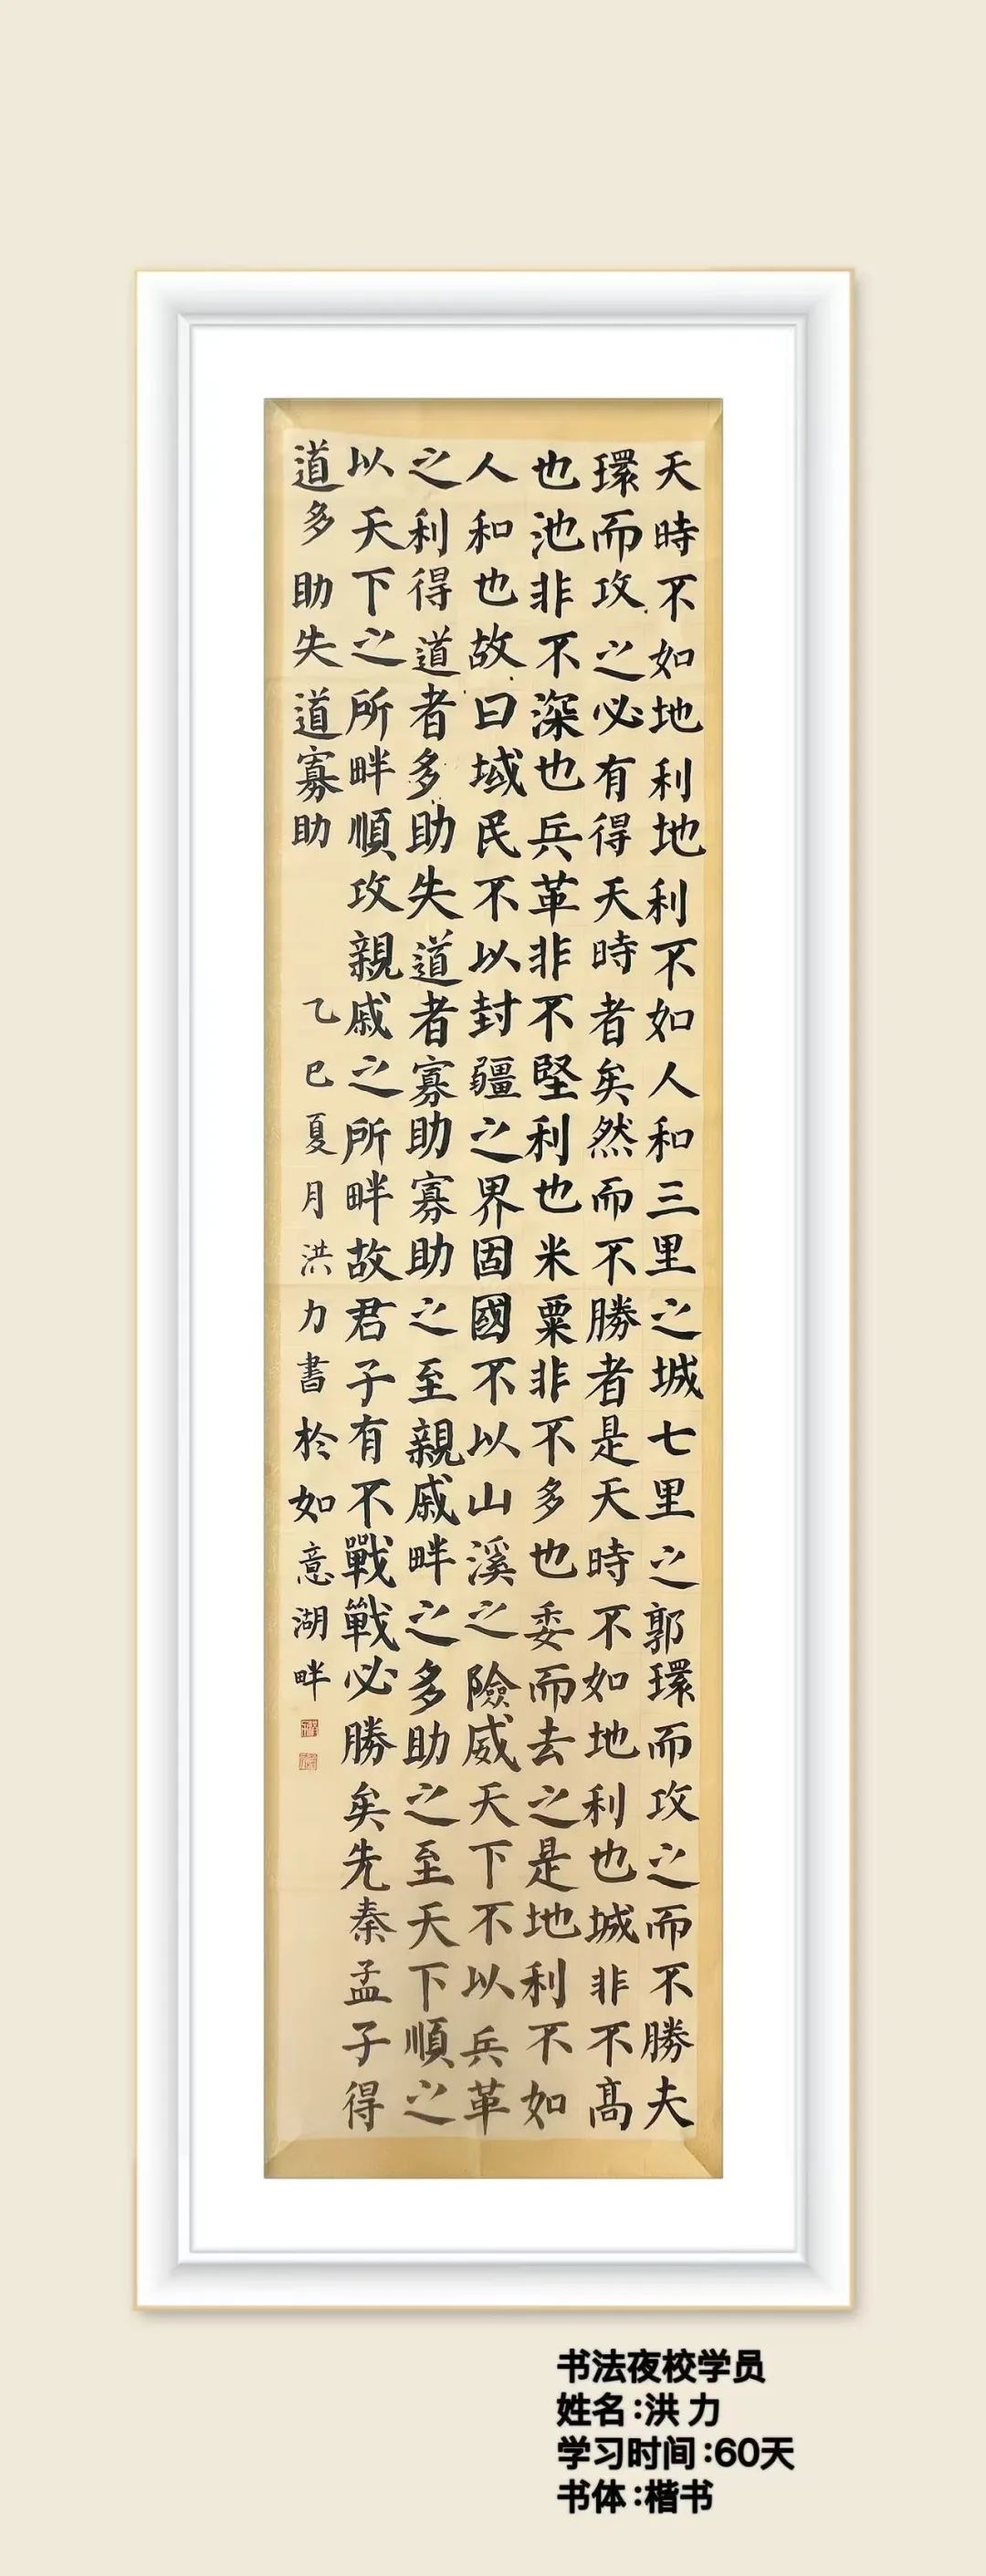 天時不如地利地利不如人和三里之城七里之郭環而攻之而不勝夫
環而攻之必有得天時者矣然而不勝者是天時不如地利也城非不高
也池非不深也兵革非不堅利也米粟非不多也委而去之是地利不如
人和也故曰域民不以封疆之界固國不以山溪之險威天下不以兵革
之利得道者多助失道者寡助寡助之至親戚畔之多助之至天下順之
以天下之所畔順攻親戚之所畔故君子有不戰戰必勝矣先秦孟子得
道多助失道寡助
乙巳夏月洪力書於如意湖畔
书法夜校学员
姓名:洪 力
学习时间:60天
书体:楷书